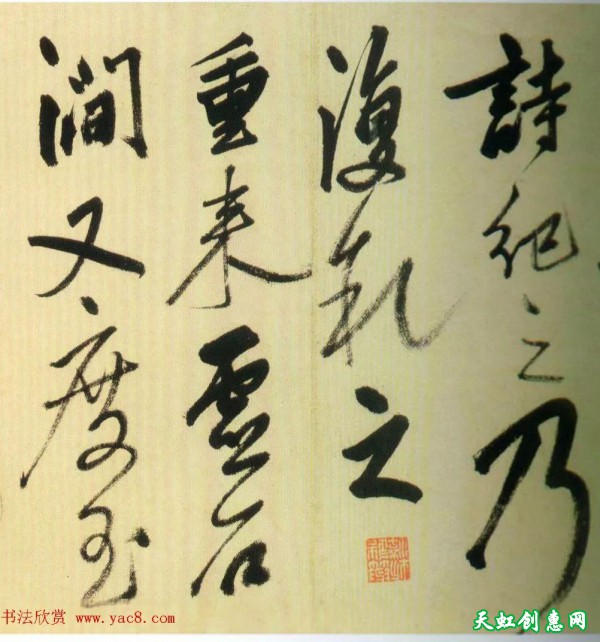 詩紀之乃
復之
重来石
澗又度玉
书法欣赏 www.yac8.com
天虹创惠网